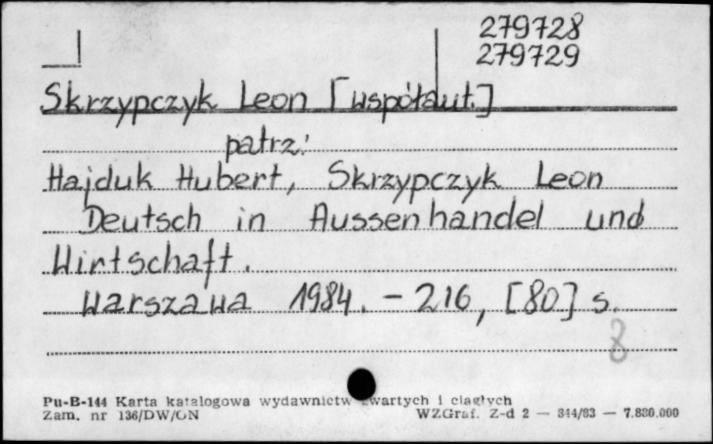 279728
279729
Skrzypczyk Leon [współaut.]
patrz:
Hajduk Hubert, Skrzypczyk Leon
Deutsch in Aussenhandel und
Wirtschaft.
Warszawa 1984. - 216, [80] s.
8
Pu-B-144 Karta katalogowa wydawnictw zwartych i ciągłych
Zam. nr 136/DW/ON WZGraf. Z-d 2 — 344/83 — 7.880.000